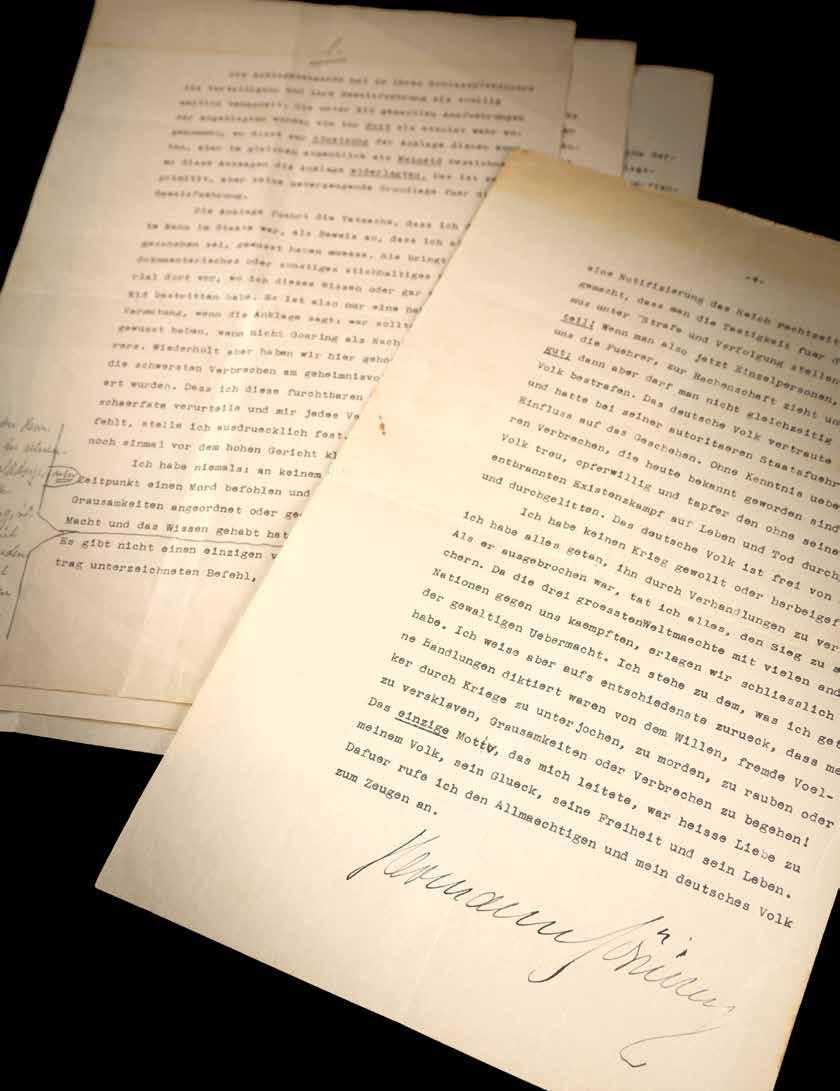 1.
Die Anklagebehoerde hat in ihren Schlussplaedoyers
die Verteidigung und ihre Beweisfuehrung als voellig
wertlos behandelt. Die unter Eid gemachten Ausfuehrungen
der Angeklagten wurden von ihr dort als absolut wahr an-
genommen, wo diese zur Stuetzung der Anklage dienen konn
ten, aber im gleichen Augenblick als Meineid bezeichnet
wo diese Aussagen die Anklage widerlegten. Das ist
primitiv, aber keine ueberzeugende Grundlage fuer
Beweisfuehrung.
Die Anklage fuehrt die Tatsache, dass ich
te Mann im Staate war, als Beweis an, dass ich
geschehen sei, gewusst haben muesse. Sie bringt
dokumentarisches oder sonstiges stichhaltiges
rial dort vor, wo ich dieses Wissen oder gar
Eid bestritten habe. Es ist also nur eine
Vermutung, wenn die Anklage sagt: wer sollte
gewusst haben, wenn nicht Goering als Nach
rers. Wiederholt aber haben wir hier geho
die schwersten Verbrechen am geheimnisvo
ert wurden. Dass ich diese furchtbaren
schaerfste verurteile und mir jedes Ve
fehlt, stelle ich ausdruecklich fest.
noch einmal vor dem hohen Gericht kl
Ich habe niemals; an keinem
Zeitpunkt einen Mord befohlen und
Grausamkeiten angeordnet oder ge
Macht und das Wissen gehabt hat
Es gibt nicht einen einzigen v
trag unterzeichneten Befehl,
-4-
eine Notifizierung das Reich rechtzeit
gemacht, dass man die Taetigkeit fuer d
aus unter "Strafe und Verfolgung stellen
teil! Wenn man also jetzt Einzelpersonen,
uns die Fuehrer, zur Rechenschaft zieht un
gut; dann aber darf man nicht gleichzeitig
Volk bestrafen. Das deutsche Volk vertraute
und hatte bei seiner autoritaeren Staatsfuehr
Einfluss auf das Geschehen. Ohne Kenntnis uebe
ren Verbrechen, die heute bekannt geworden sind
Volk treu, opferwillig und tapfer den ohne seine
entbrannten Existenzkampf auf Leben und Tod durch
und durchgelitten. Das deutsche Volk ist frei von
Ich habe keinen Krieg gewollt oder herbeigef
ich habe alles getan, ihn durch Verhandlungen zu ver
Als er ausgebrochen war, tat ich alles, den Sieg zu s
chern. Da die drei groesstenWeltmaechte mit vielen and
Nationen gegen uns kaempften, erlagen wir schliesslich
der gewaltigen Uebermacht. Ich stehe zu dem, was ich get
habe. Ich weise aber aufs entschiedenste zurueck, dass me
ne Handlungen diktiert waren von dem Willen, fremde Voel-
ker durch Kriege zu unterjochen, zu morden, zu rauben oder
zu versklaven, Grausamkeiten oder Verbrechen zu begehen!
Das einzige Motiv, das mich leitete, war heisse Liebe zu
meinem Volk, sein Glueck, seine Freiheit und sein Leben.
Dafuer rufe ich den Allmaechtigen und mein deutsches Volk
zum Zeugen an.
Hermann Göring